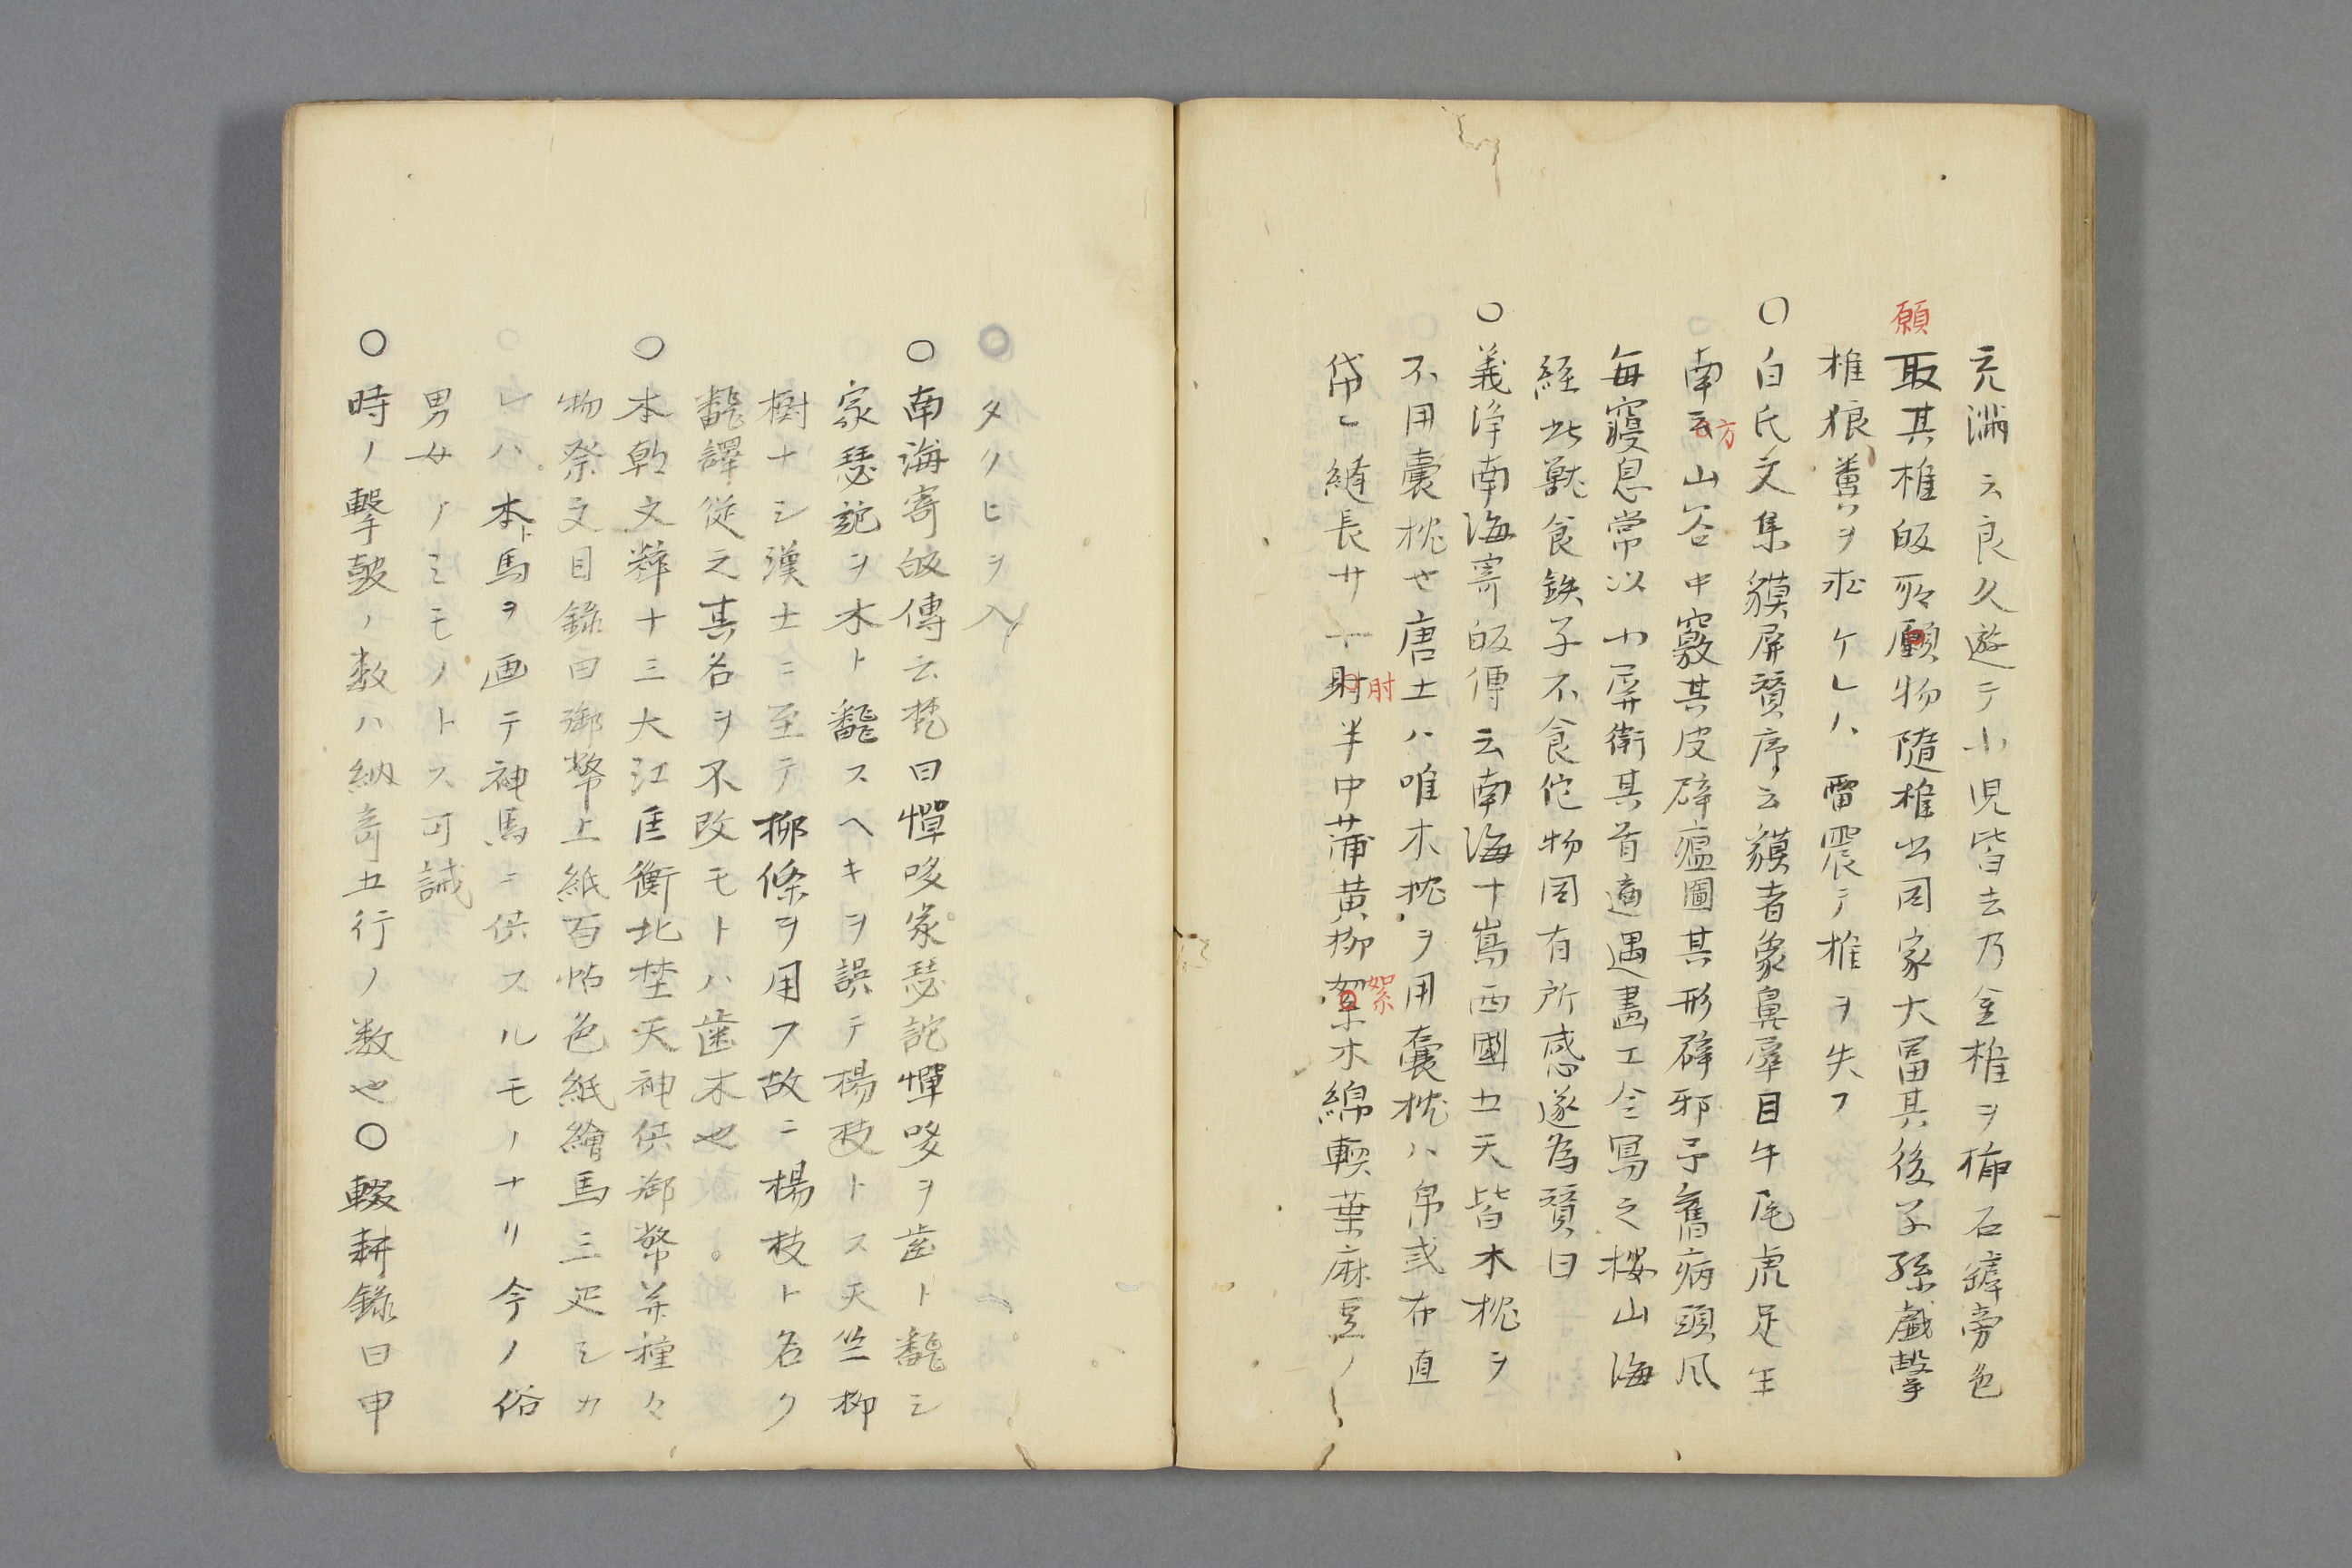 充满云良久遊テ小児皆去乃金椎ヲ挿石鏬旁色
願
取其椎皈所願物随椎出因家大富其後子孫戯撃
椎狼糞ヲ求ケレハ雷震テ椎ヲ失フ
〇白氏文集貘屏賛序云貘者象鼻犀目牛尾虎足生
南云山谷中寝其皮辟瘟圖其形辟邪予舊病頭風
方
毎寝息常以小屏衛其首適遇畫工令寫之按山海
経此獣食鉄子不食佗物因有所感遂為賛曰
〇義浄南海寄皈傳云南海十嶌西國五天皆木枕ヲ
不用囊枕セ唐土ハ唯木枕ヲ用囊枕ハ帛或布直
帒ニ縫長サ一財半中蒲黄柳絮木綿輭葉麻豆ノ
肘
絮
タクヒヲ入
〇南海寄皈傳云梵曰憚哆家瑟詑憚哆ヲ歯ト飜シ
家瑟詑ヲ木ト飜スヘキヲ誤テ楊枝トス天竺柳
樹ナシ漢土ニ至テ柳條ヲ用フ故ニ楊枝ト名ク
飜譯従之其名ヲ不改モトハ歯木也
〇本朝文粹十三大江匡衡北埜天神供御幣并種々
物祭文目錄曰御幣上紙百帖色紙繪馬三疋シカ
レハ本ト馬ヲ画テ神馬ニ供スルモノナリ今ノ俗
男女ノミモノトス可誡
〇時ノ擊鼓ノ数ハ納音五行ノ数也〇輟耕錄曰申